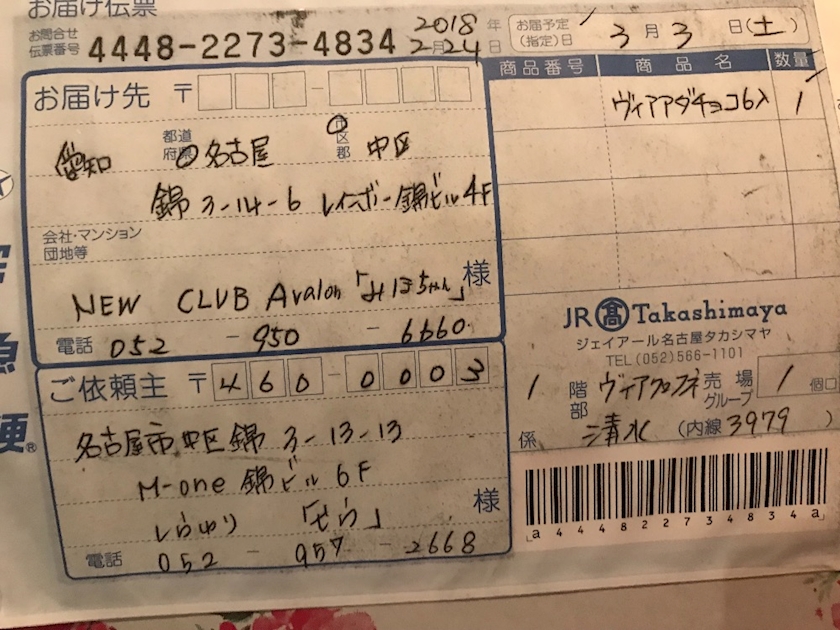 お届け伝票
お問合せ伝票番号 4448-2273-4834 2018年2月24日
お届予定(指定)日 3月3日(土)
商品番号 商品名 数量
ヴィアアダチョコ6入 1
お届け先 〒
愛知 都道府県 名古屋 市区郡 中区
錦 3-14-6 レインボー錦ビル4F
会社・マンション団地等
NEW CLUB Avalon「みほちゃん」様
電話 052-950-6660
ご依頼主 〒460-0003
名古屋市中区錦 3-13-13
M-one 錦ビル 6F
しらゆり 「せら」 様
電話 052-957-2668
JR 髙 Takashimaya
ジェイアール名古屋タカシマヤ
TEL(052)566-1101
1 階部 売場グループ 1 個口
係 清水 (内線 3979)
a444822734834a